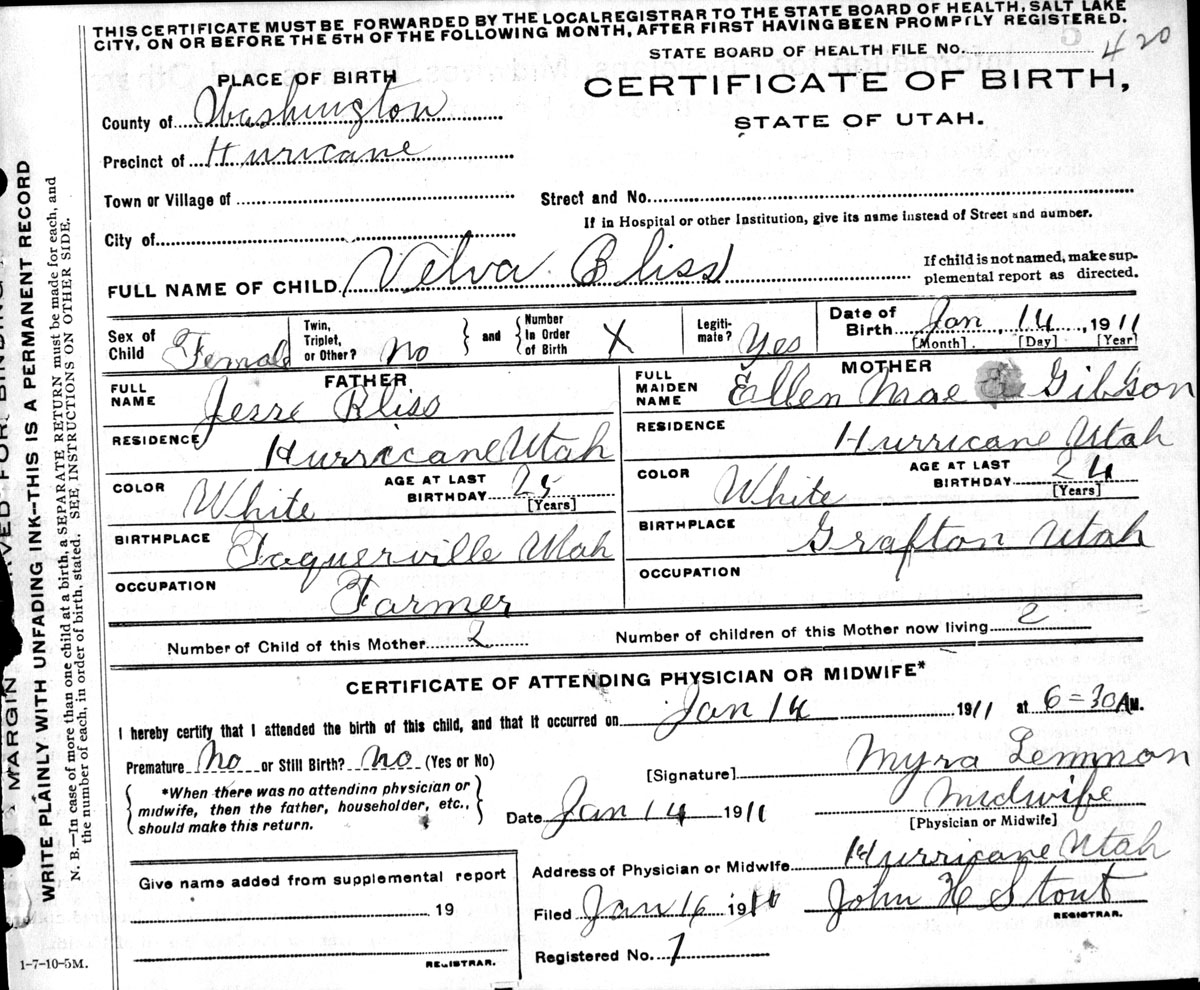 THIS CERTIFICATE MUST BE FORWARDED BY THE LOCAL REGISTRAR TO THE STATE BOARD OF HEALTH, SALT LAKE
CITY, ON OR BEFORE THE 5TH OF THE FOLLOWING MONTH, AFTER FIRST HAVING BEEN PROMPTLY REGISTERED.
STATE BOARD OF HEALTH FILE NO. 420
PLACE OF BIRTH
CERTIFICATE OF BIRTH,
STATE OF UTAH.
County of Washington
Precinct of Hurricane
Town or Village of
Street and No.
If in Hospital or other Institution, give its name instead of Street and number.
City of
FULL NAME OF CHILD Velva Bliss
If child is not named, make sup-
plemental report as directed.
Sex of Child Female
Twin, Triplet, or Other? No
and
Number In Order of Birth X
Legiti- mate? Yes
Date of Birth Jan, 14, 1911
[Month] [Day] [Year]
FATHER
FULL NAME Jesse Bliss
RESIDENCE Hurricane Utah
COLOR White
AGE AT LAST BIRTHDAY 25
[Years]
BIRTHPLACE Toquerville Utah
OCCUPATION Farmer
MOTHER
FULL MAIDEN NAME Ellen Mae Gibson
RESIDENCE Hurricane Utah
COLOR White
AGE AT LAST BIRTHDAY 24
[Years]
BIRTHPLACE Grafton Utah
OCCUPATION
Number of Child of this Mother 2
Number of children of this Mother now living 2
CERTIFICATE OF ATTENDING PHYSICIAN OR MIDWIFE*
I hereby certify that I attended the birth of this child, and that it occurred on Jan 14 1911 at 6=30 A M.
Premature No or Still Birth? No (Yes or No)
*When there was no attending physician or
midwife, then the father, householder, etc.,
should make this return.
[Signature] Myra Lemmon
Date Jan 14 1911
Midwife
[Physician or Midwife]
Address of Physician or Midwife Hurricane Utah
Give name added from supplemental report
19
REGISTRAR.
Filed Jan 16 1911 John H Stout
REGISTRAR.
Registered No. 1
1-7-10-5M.
MARGIN FOR BINDING
WRITE PLAINLY WITH UNFADING INK--THIS IS A PERMANENT RECORD
N. B.--In case of more than one child at a birth, a SEPARATE RETURN must be made for each, and
the number of each, in order of birth, stated. SEE INSTRUCTIONS ON OTHER SIDE.